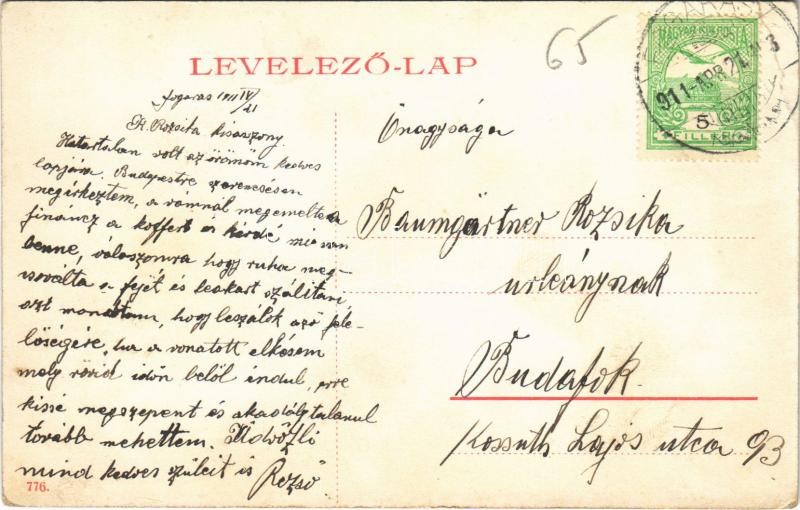 65
LEVELEZŐ-LAP
FOGARAS
911 APR 21
MAGYAR KIR. POSTA
5
FILLÉR
Fogaras 1911 IV/21
K. Rozsika kisaszony.
Határtalan volt az örömöm kedves
lapjára. Budapestre szerencsésen
megérkeztem, a vámnál megemelte a
fináncz a koffert és kérdé mi van
benne, válaszomra hogy ruha meg-
csóválta a fejét és leakart szálitani
azt mondtam, hogy leszálok az ő fele-
lőségére, ha a vonatott elkésem
mely rövid időn belől indul, erre
kissé megszepent és akadálytalanul
tovább mehettem. Üdvözli
mind kedves szüleit is Rezső
776.
Őnagysága
Baumgärtner Rozsika
urleánynak
Budafok.
Kossuth Lajos utca 93